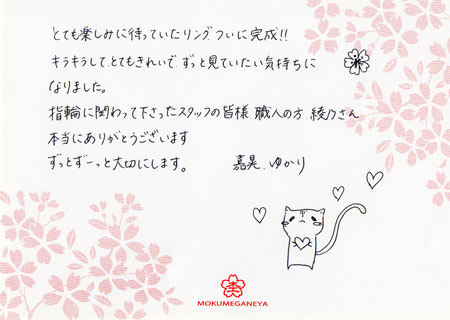 とても楽しみに待っていたリングついに完成!!
キラキラして、とてもきれいで、ずっと見ていたい気持ちに
なりました。
指輪に関わって下さったスタッフの皆様 職人の方 綾乃さん
本当にありがとうございます
ずっとずーっと大切にします。
嘉晃.ゆかり
MOKUMEGANEYA